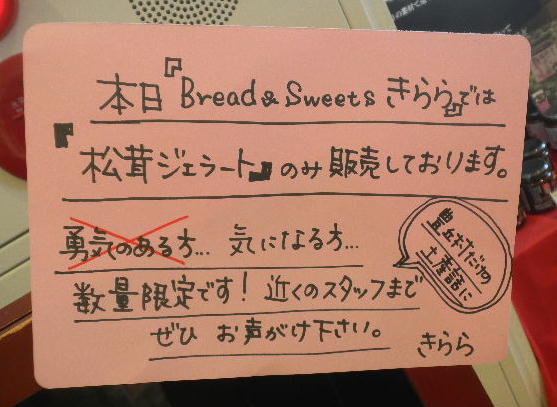 本日『Bread & Sweets きらら』では
『松茸ジェラート』のみ販売しております。
勇気のある方… 気になる方…
数量限定です! 近くのスタッフまで
ぜひ お声がけ下さい。
きらら
土産話に